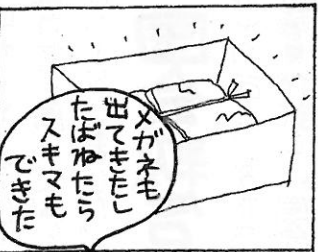 メガネも
出てきたし
たばねたら
スキマも
できた